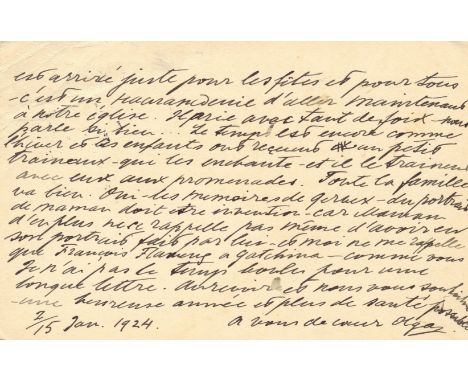 est arrivé juste pour les fêtes et pour tous
c'est un d'aller maintenant
à notre église. avec tant de
parle si bien... Le temps est encore comme
hiver et les enfants ont reçu un petit
traineaux - qui les enchante et il le traine
avec eux aux promenades. Toute la famille
va bien. Oui les memoires de - du portrait
de maman doit être invention - car Maman
d'en plus ne se rappelle pas même d'avoir eu
son portrait fait par lui - et moi ne me rappelle
que François Flameng a Gatchina - comme vous
Je n'ai pas le temps pour une
longue lettre. Au revoir et nous vous souhaitons
une heureuse année et plus de santé possible
2/15 Jan. 1924. A vous de cœur Olga